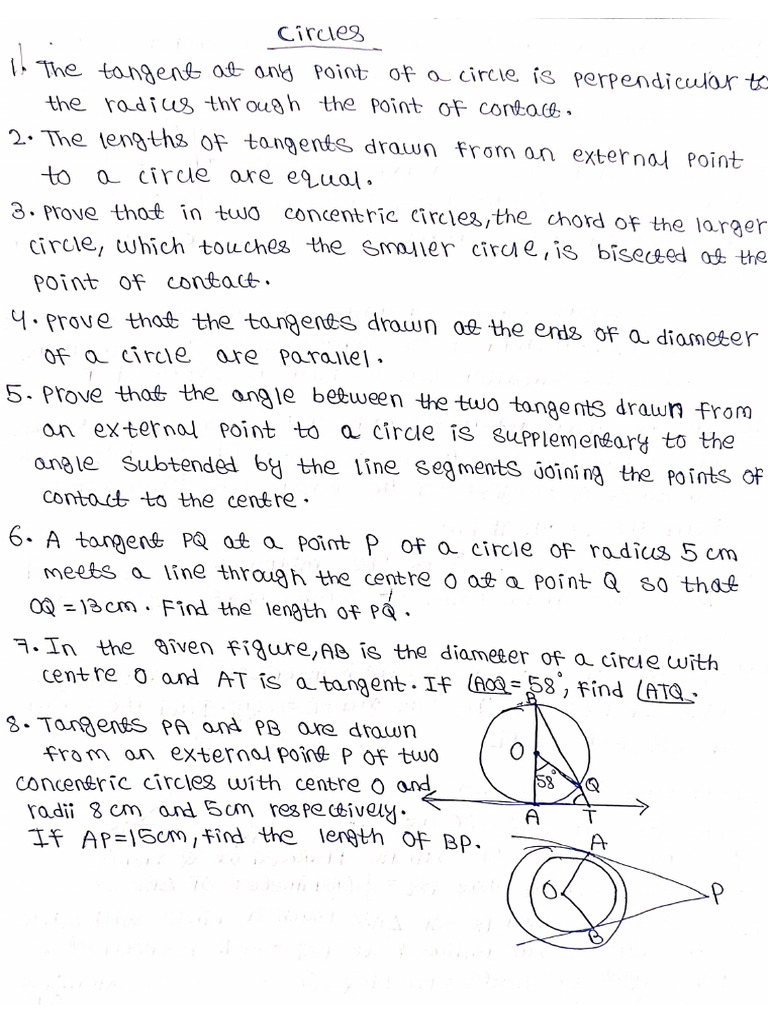 Circles
1. The tangent at any point of a circle is perpendicular to
the radius through the point of contact.
2. The lengths of tangents drawn from an external point
to a circle are equal.
3. Prove that in two concentric circles, the chord of the larger
circle, which touches the smaller circle, is bisected at the
point of contact.
4. Prove that the tangents drawn at the ends of a diameter
of a circle are parallel.
5. Prove that the angle between the two tangents drawn from
an external point to a circle is supplementary to the
angle subtended by the line segments joining the points of
contact to the centre.
6. A tangent PQ at a point P of a circle of radius 5 cm
meets a line through the centre O at a point Q so that
OQ = 13 cm. Find the length of PQ.
7. In the given figure, AB is the diameter of a circle with
centre O and AT is a tangent. If ∠AOQ = 58°, find ∠ATQ.
8. Tangents PA and PB are drawn
from an external point P of two
concentric circles with centre O and
radii 8 cm and 5 cm respectively.
If AP = 15 cm, find the length of BP.
B
O
58°
Q
A
T
A
O
P
B